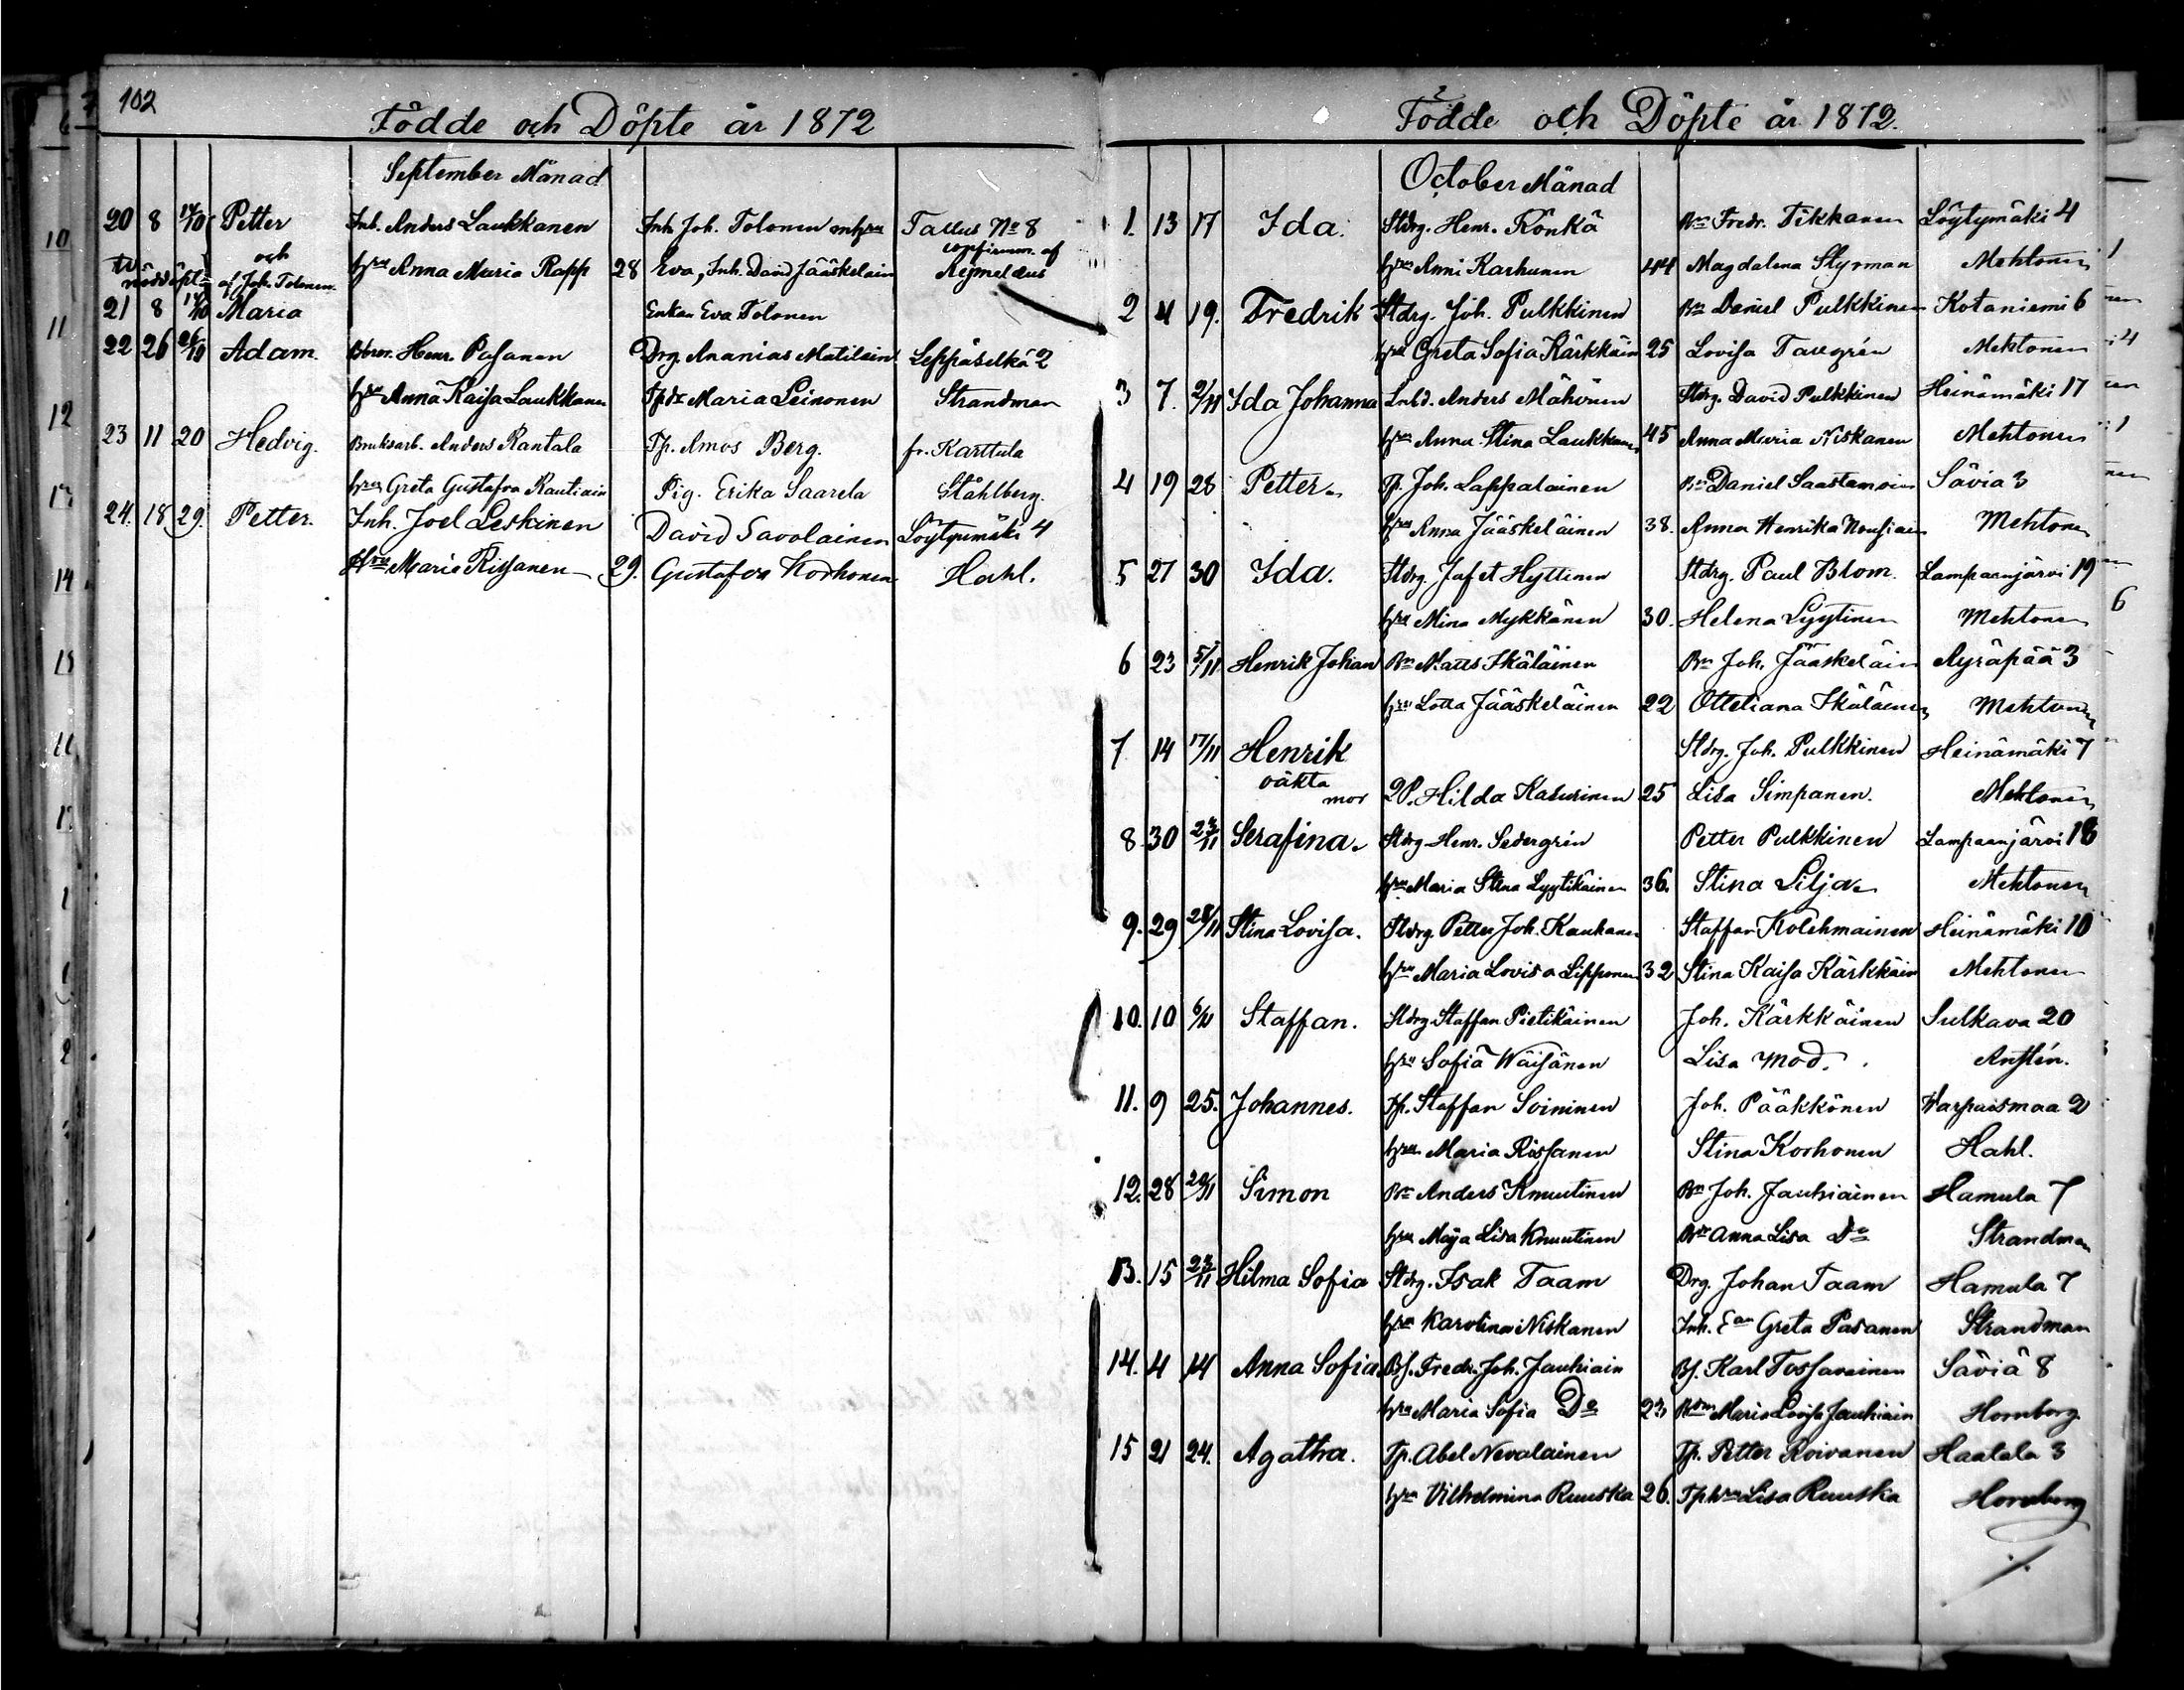 102
Födde och Döpte år 1872
September Månad
20 8 14/9 Petter Inh. Anders Laukkanen Inh. Joh. Tolonen m hru Tallus No 8
och confirm. af
nöddöpt af Joh. Tolonen. hru Anna Maria Rapp 28 Eva, Inh. David Jääskeläin
21 8 Maria Enkan Eva Tolonen
22 26 Adam. Henr. Pasanen Drg. Ananias Matilain Leppäselkä 2
hru Anna Kaisa Laukkanen Maria Leinonen Strandman
23 11 20 Hedvig. Bruksarb. Anders Rantala Tp. Amos Berg. fr. Karttula
hru Greta Gustafva Rautiain Pig. Erika Saarela Ståhlberg.
24. 18 29. Petter. Inh. Joel Leskinen David Savolainen Löytymäki 4
Hru Maria Rissanen 29. Gustafva Korhonen Hahl.
Födde och Döpte år 1872.
October Månad
1. 13 17 Ida. Stdrg. Henr. Rönkä Bn Fredr. Tikkanen Löytymäki 4
hru Anni Karhunen 44 Magdalena Styrman Mehtonen
2 4 19. Fredrik Stdrg. Joh. Pulkkinen Bn Daniel Pulkkinen Kotaniemi 6
hru Greta Sofia Kärkkäin 25 Lovisa Mehtonen
3 7. 2/11 Ida Johanna Anders Mähönen Stdrg. David Pulkkinen Heinämäki 17
hru Anna Stina Laukkanen 45 Anna Maria Niskanen Mehtonen
4 19 28 Petter. Tp. Joh. Lappalainen Bn Daniel Saastamoin Säviä 3
hru Anna Jääskeläinen 38. Anna Henrika Nousiain Mehtonen
5 27 30 Ida. Stdrg. Jafet Hyttinen Stdrg. Paul Blom. Lampaanjärvi 19
hru Mina Mykkänen 30. Helena Lyytinen Mehtonen
6 23 5/11 Henrik Johan Bn Matts Ikäläinen Bn Joh. Jääskeläin Äyräpää 3
hru Lotta Jääskeläinen 22 Otteliana Ikäläinen Mehtonen
7 14 17/11 Henrik Stdrg. Joh. Pulkkinen Heinämäki 7
oäkta
mor QP. Hilda Kasurinen 25 Lisa Simpanen. Mehtonen
8 30 23/11 Serafina. Stdrg Henr. Sedergrén Petter Pulkkinen Lampaanjärvi 18
hru Maria Stina Lyytikäinen 36. Stina Lilja Mehtonen
9. 29 28/11 Stina Lovisa. Stdrg. Petter Joh. Kauhanen Staffan Kolehmainen Heinämäki 10
hru Maria Lovisa Lipponen 32 Stina Kaisa Kärkkäin Mehtonen
10. 10 Staffan. Stdrg. Staffan Pietikäinen Joh. Kärkkäinen Sulkava 20
hru Sofia Wäisänen Lisa Mod. Anstén.
11. 9 25. Johannes. Tp. Staffan Soininen Joh. Pääkkönen Warpaismaa 2
hru Maria Rissanen Stina Korhonen Hahl.
12. 28 Simon Bn Anders Knuutinen Bn Joh. Jauhiainen Hamula 7
hru Maja Lisa Knuutinen Anna Lisa Do Strandman
13. 15 23/11 Hilma Sofia Stdrg. Isak Taam Drg. Johan Taam Hamula 7
hru Karolina Niskanen Inh. Ean Greta Pasanen Strandman
14. 4 14 Anna Sofia Bs. Fredr. Joh. Jauhiain Bs. Karl Tossavainen Säviä 8
hru Maria Sofia Do 23 Maria Lovisa Jauhiain Hornborg
15 21 24. Agatha. Tp. Abel Nevalainen Tp. Petter Roivanen Haatala 3
hru Vilhelmina Ruuska 26. Tphru Lisa Ruuska Hornborg